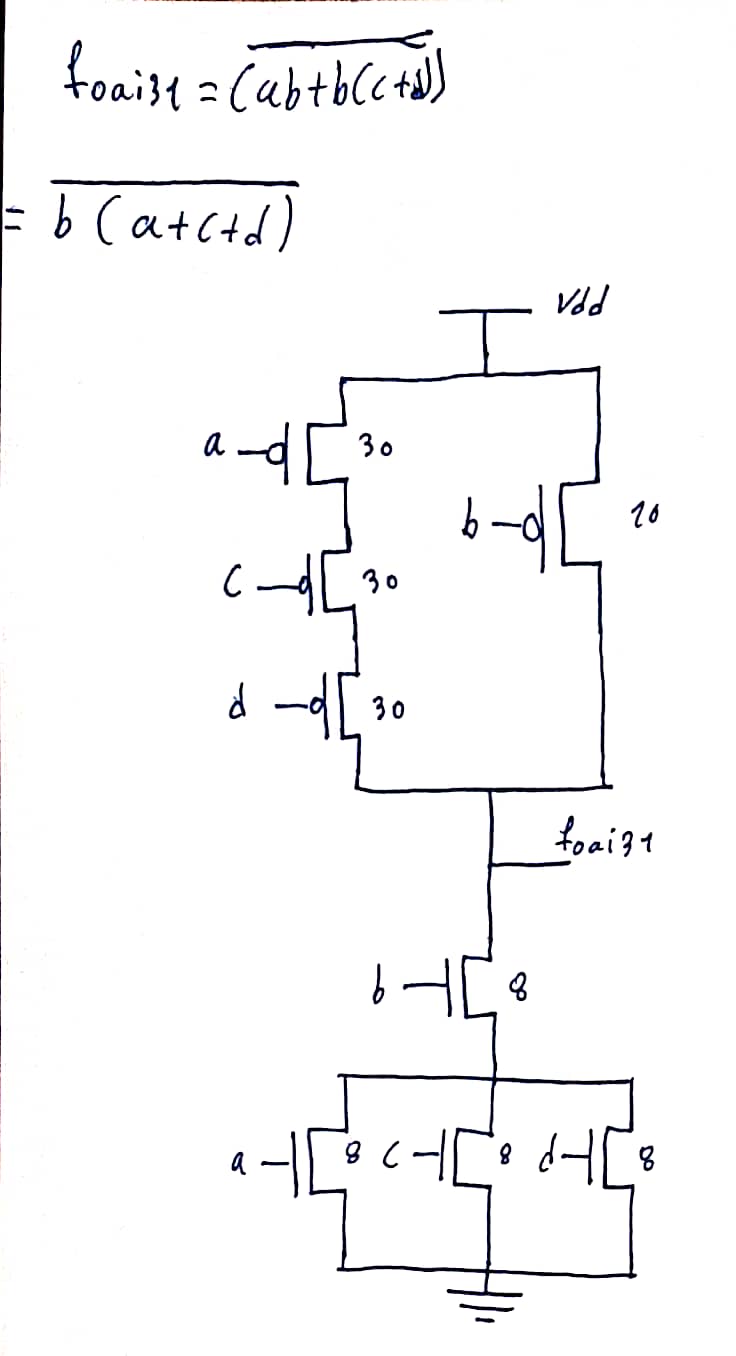 foai31 = (ab+b(c+d))
= b(a+c+d)
Vdd
a 30
b 10
c 30
d 30
foai31
b 8
a 8 c 8 d 8